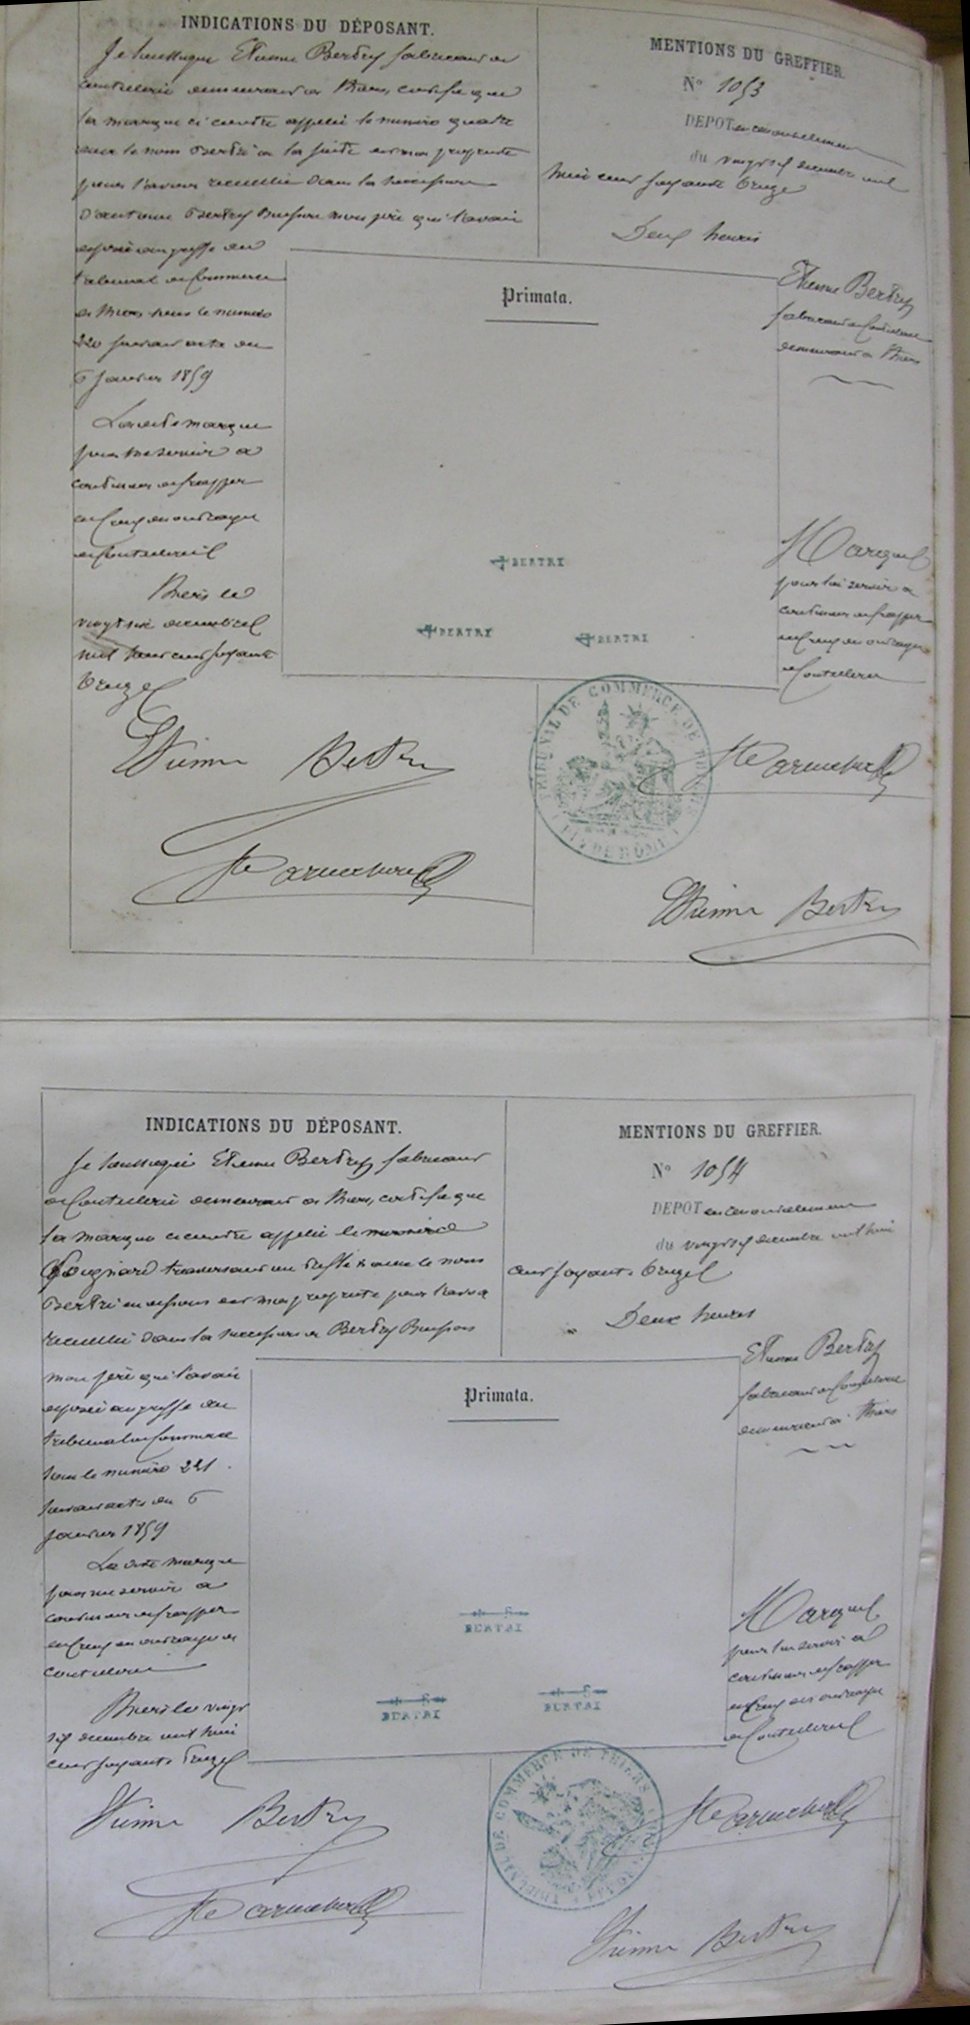 INDICATIONS DU DÉPOSANT.
Je soussigné Etienne Bertry fabricant de
coutellerie demeurant à Thiers, certifie que
la marque ci contre appelée le numéro quatre
avec le nom Bertri à la suite est ma propriété
pour l'avoir recueillie dans la succession
d'antoine Bertry Buisson mon père qui l'avait
déposée au greffe du
tribunal de Commerce
de Thiers sous le numéro
220 suivant acte du
6 Janvier 1859
La dite marque
pour me servir à
continuer de frapper
en Creux mes ouvrages
de Coutellerie
Thiers le
vingt six décembre
mil huit cent soixante
treize
Etienne Bertry
MENTIONS DU GREFFIER.
N° 1053
DEPOT en renouvellement
du vingt six décembre mil
huit cent soixante treize
Deux heures
Etienne Bertry
fabricant de Coutellerie
demeurant à Thiers
Primata.
Marque
pour lui servir à
continuer de frapper
en Creux ses ouvrages
de Coutellerie
4 BERTRI
4 BERTRI
4 BERTRI
TRIBUNAL DE COMMERCE DE THIERS
PUY DE DÔME
Etienne Bertry
INDICATIONS DU DÉPOSANT.
Je soussigné Etienne Bertry fabricant
de Coutellerie demeurant à Thiers, certifie que
la marque ci contre appelée le
Poignard traversant un avec le nom
Bertri au dessous est ma propriété pour l'avoir
recueillie dans la succession de Bertry Buisson
mon père qui l'avait
déposée au greffe du
tribunal de Commerce
sous le numéro 221
suivant acte du 6
Janvier 1859
La dite marque
pour me servir à
continuer de frapper
en Creux mes ouvrages de
coutellerie
Thiers le vingt
six décembre mil huit
cent soixante treize
Etienne Bertry
MENTIONS DU GREFFIER.
N° 1054
DEPOT en renouvellement
du vingt six décembre mil huit
cent soixante treize
Deux heures
Etienne Bertry
fabricant de Coutellerie
demeurant à Thiers
Primata.
Marque
pour lui servir à
continuer de frapper
en Creux ses ouvrages
de Coutellerie
BERTRI
BERTRI
BERTRI
TRIBUNAL DE COMMERCE DE THIERS
Etienne Bertry